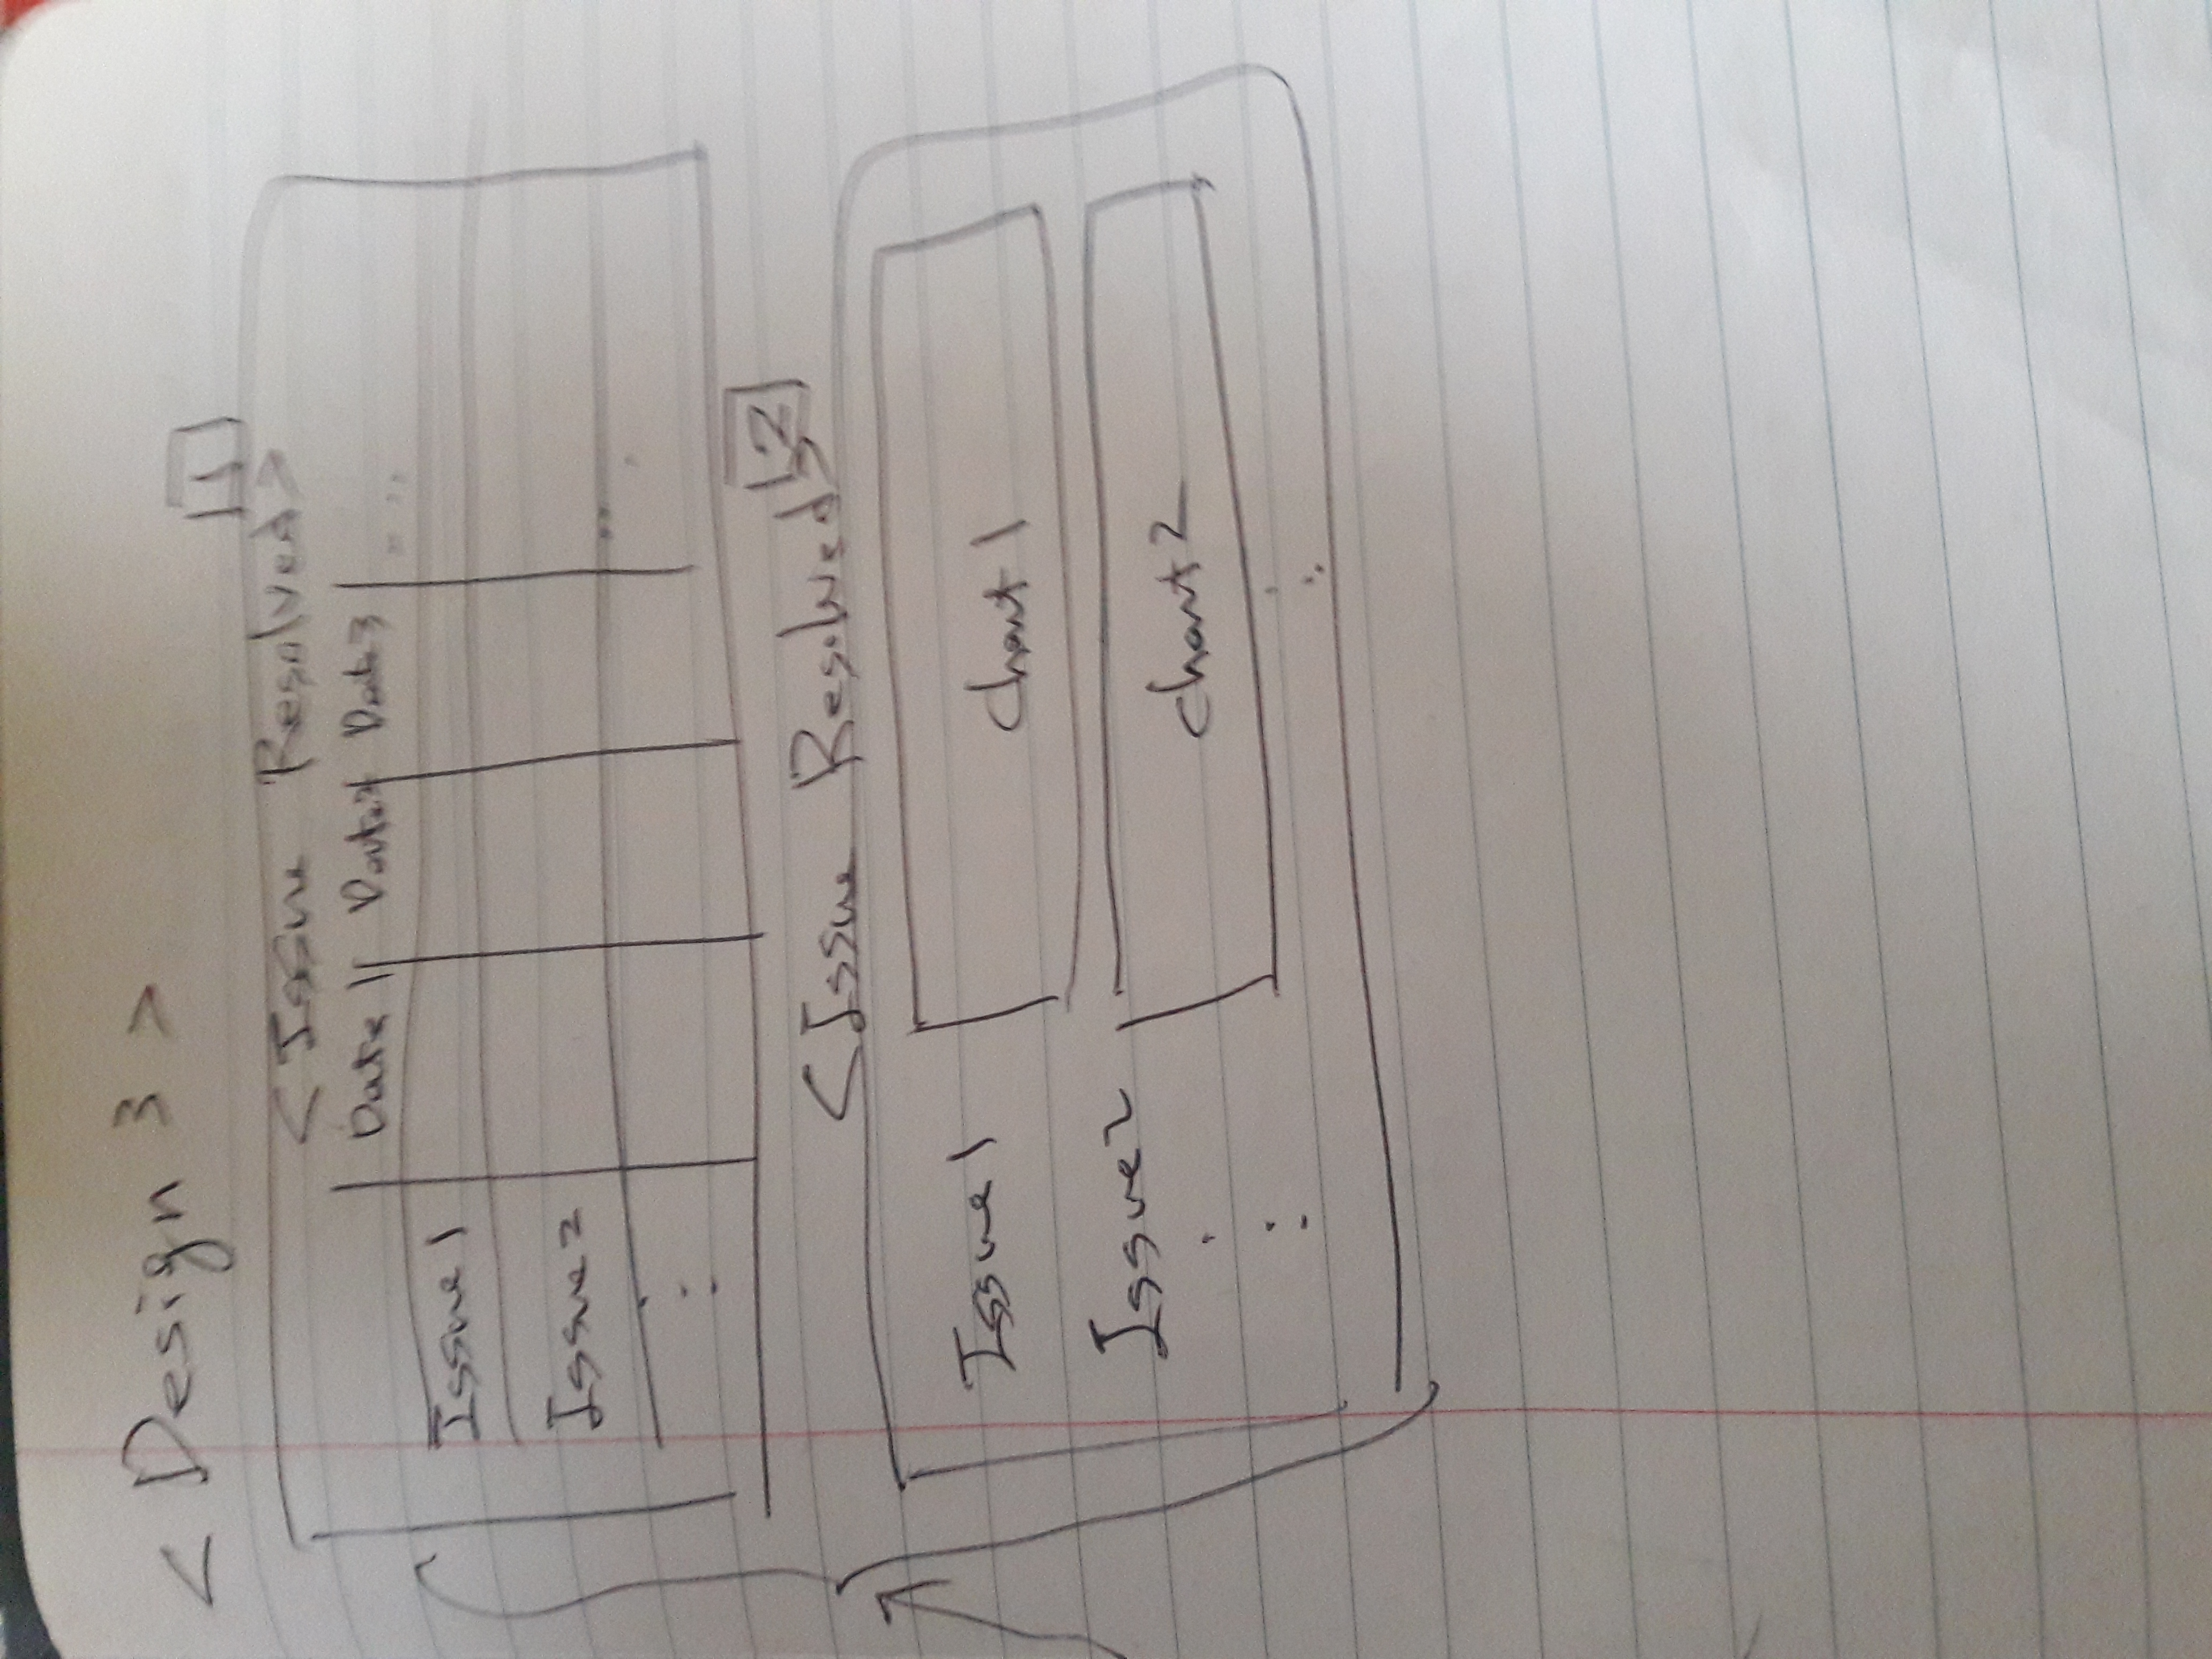 < Design 3 >
1
< Issue Resolved >
Date 1 Date 2 Date 3 ....
Issue 1
Issue 2
..
:
2
< Issue Resolved >
Issue 1 Chart 1
Issue 2 Chart 2
: